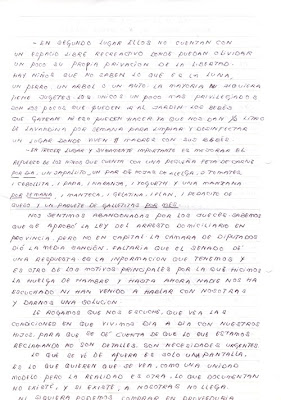 - EN SEGUNDO LUGAR ELLOS NO CUENTAN CON
UN ESPACIO LIBRE RECREATIVO DONDE PUEDAN OLVIDAR
UN POCO SU PROPIA PRIVACION DE LA LIBERTAD.
HAY NIÑOS QUE NO SABEN LO QUE ES LA LUNA,
UN PERRO, UN ARBOL O UN AUTO. LA MAYORIA NI SIQUIERA
TIENE JUGUETES. LOS UNICOS UN POCO MAS PRIVILEGIADOS
SON LOS POCOS QUE PUEDEN IR AL JARDIN. LOS BEBÉS
QUE GATEAN NI ESO PUEDEN HACER YA QUE NOS DAN 1/2 LITRO
DE LAVANDINA POR SEMANA PARA LIMPIAR Y DESINFECTAR
UN LUGAR DONDE VIVEN MADRES CON SUS BEBÉS.
- EN TERCER LUGAR Y SUMAMENTE IMPORTANTE ES MEJORAR EL
REFUERZO DE LOS NIÑOS QUE CUENTA CON UNA PEQUEÑA FETA DE CARNE
POR DIA, UN ZAPALLITO, UN PAR DE HOJAS DE ACELGA, 2 TOMATES,
1 CEBOLLITA, 1 PAPA, 1 NARANJA, 1 YOGURTH Y UNA MANZANA
POR SEMANA, 1 MANTECA, 1 GELATINA, 1 FLAN, 1 PEDACITO DE
QUESO Y UN PAQUETE DE GALLETITAS POR MES.
NOS SENTIMOS ABANDONADAS POR LOS JUECES. SABEMOS
QUE SE APROBÓ LA LEY DEL ARRESTO DOMICILIARIO EN
PROVINCIA, PERO NO EN CAPITAL. LA CAMARA DE DIPUTADOS
DIÓ LA MEDIA SANCIÓN. FALTARIA QUE EL SENADO DÉ
UNA RESPUESTA. ES LA INFORMACION QUE TENEMOS Y
ES OTRO DE LOS MOTIVOS PRINCIPALES POR LA QUE HICIMOS
LA HUELGA DE HAMBRE Y HASTA AHORA NADIE NOS HA
ESCUCHADO NI HAN VENIDO A HABLAR CON NOSOTRAS
Y DARNOS UNA SOLUCION.
LE ROGAMOS QUE NOS ESCUCHE, QUE VEA LAS
CONDICIONES EN QUE VIVIMOS DIA A DIA CON NUESTROS
HIJOS. PARA QUE SE DÉ CUENTA DE QUE LO QUE ESTAMOS
RECLAMANDO NO SON DETALLES, SON NECESIDADES URGENTES.
LO QUE SE VE DE AFUERA ES SOLO UNA PANTALLA,
ES LO QUE QUIEREN QUE SE VEA, COMO UNA UNIDAD
MODELO. PERO LA REALIDAD ES OTRA. LO QUE DOCUMENTAN
NO EXISTE, Y SI EXISTE, A NOSOTRAS NO LLEGA.
NI SIQUIERA PODEMOS COMPRAR EN PROVEEDURIA